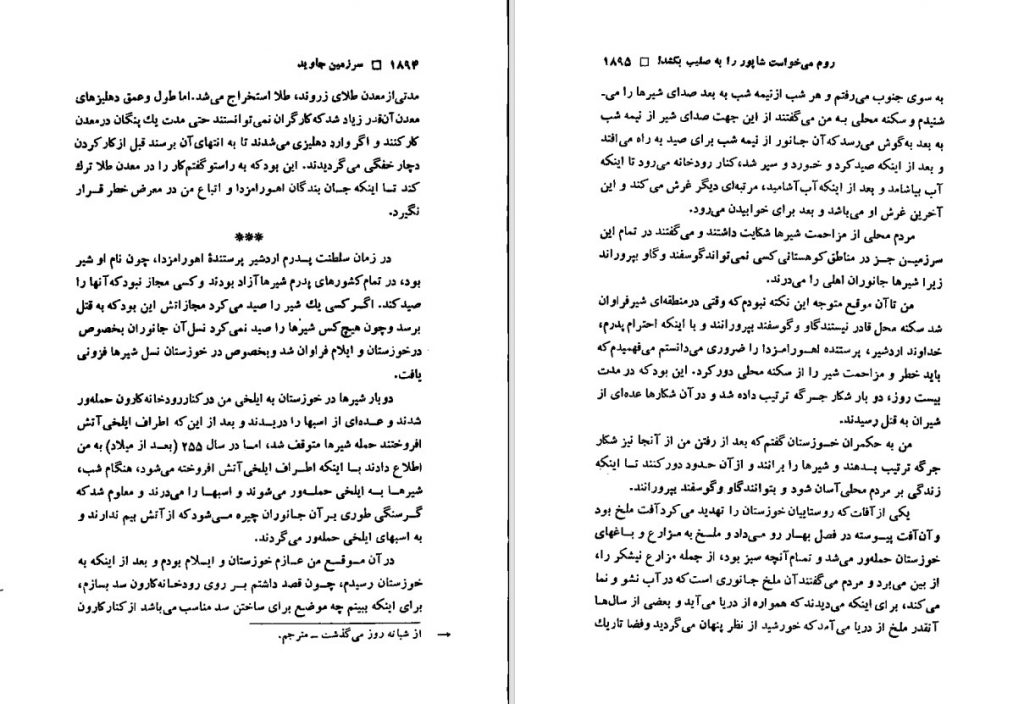 ۱۸۹۴ □ سرزمین جاوید
مدتی از معدن طلای زروند، طلا استخراج می‌شد. اما طول و عمق دهلیزهای
معدن آن‌قدر زیاد شد که کارگران نمی‌توانستند حتی مدت یك پنگان در معدن
کار کنند و اگر وارد دهلیزی می‌شدند تا به انتهای آن برسند قبل از کار کردن
دچار خفگی می‌گردیدند. این بود که به راستو گفتم کار را در معدن طلا ترك
کند تا اینکه جان بندگان اهورامزدا و اتباع من در معرض خطر قرار
نگیرد.
***
در زمان سلطنت پدرم اردشیر پرستندهٔ اهورامزدا، چون نام او شیر
بود، در تمام کشورهای پدرم شیرها آزاد بودند و کسی مجاز نبود که آنها را
صید کند. اگر کسی یك شیر را صید می‌کرد مجازاتش این بود که به قتل
برسد و چون هیچ کس شیرها را صید نمی‌کرد نسل آن جانوران بخصوص
در خوزستان و ایلام فراوان شد و بخصوص در خوزستان نسل شیرها فزونی
یافت.
دو بار شیرها در خوزستان به ایلخی من در کنار رودخانه کارون حمله‌ور
شدند و عده‌ای از اسبها را دریدند و بعد از این که اطراف ایلخی آتش
افروختند حمله شیرها متوقف شد، اما در سال ۲۵۵ (بعد از میلاد) به من
اطلاع دادند با اینکه اطراف ایلخی آتش افروخته می‌شود، هنگام شب،
شیرها به ایلخی حمله‌ور می‌شوند و اسبها را می‌درند و معلوم شد که
گرسنگی طوری بر آن جانوران چیره می‌شود که از آتش بیم ندارند و
به اسبهای ایلخی حمله‌ور می‌گردند.
در آن موقع من عازم خوزستان و ایلام بودم و بعد از اینکه به
خوزستان رسیدم، چون قصد داشتم بر روی رودخانه کارون سد بسازم،
برای اینکه ببینم چه موضع برای ساختن سد مناسب می‌باشد از کنار کارون
← از شبانه روز می‌گذشت ـ مترجم.
روم می‌خواست شاپور را به صلیب بکشد! □ ۱۸۹۵
به سوی جنوب می‌رفتم و هر شب از نیمه شب به بعد صدای شیرها را می‌ـ
شنیدم و سکنه محلی به من می‌گفتند از این جهت صدای شیر از نیمه شب
به بعد به گوش می‌رسد که آن جانور از نیمه شب برای صید به راه می‌افتد
و بعد از اینکه صید کرد و خورد و سیر شد، کنار رودخانه می‌رود تا اینکه
آب بیاشامد و بعد از اینکه آب آشامید، مرتبه‌ای دیگر غرش می‌کند و این
آخرین غرش او می‌باشد و بعد برای خوابیدن می‌رود.
مردم محلی از مزاحمت شیرها شکایت داشتند و می‌گفتند در تمام این
سرزمین جز در مناطق کوهستانی کسی نمی‌تواند گوسفند و گاو بپروراند
زیرا شیرها جانوران اهلی را می‌درند.
من تا آن موقع متوجه این نکته نبودم که وقتی در منطقه‌ای شیر فراوان
شد سکنه محل قادر نیستند گاو و گوسفند بپرورانند و با اینکه احترام پدرم،
خداوند اردشیر، پرستنده اهورامزدا را ضروری می‌دانستم می‌فهمیدم که
باید خطر و مزاحمت شیر را از سکنه محلی دور کرد. این بود که در مدت
بیست روز، دو بار شکار جرگه ترتیب داده شد و در آن شکارها عده‌ای از
شیران به قتل رسیدند.
من به حکمران خوزستان گفتم که بعد از رفتن من از آنجا نیز شکار
جرگه ترتیب بدهند و شیرها را برانند و از آن حدود دور کنند تا اینکه
زندگی بر مردم محلی آسان شود و بتوانند گاو و گوسفند بپرورانند.
یکی از آفات که روستاییان خوزستان را تهدید می‌کرد آفت ملخ بود
و آن آفت پیوسته در فصل بهار رو می‌داد و ملخ به مزارع و باغهای
خوزستان حمله‌ور می‌شد و تمام آنچه سبز بود، از جمله مزارع نیشکر را،
از بین می‌برد و مردم می‌گفتند آن ملخ جانوری است که در آب نشو و نما
می‌کند، برای اینکه می‌دیدند که همواره از دریا می‌آید و بعضی از سال‌ها
آنقدر ملخ از دریا می‌آمد که خورشید از نظر پنهان می‌گردید و فضا تاریك